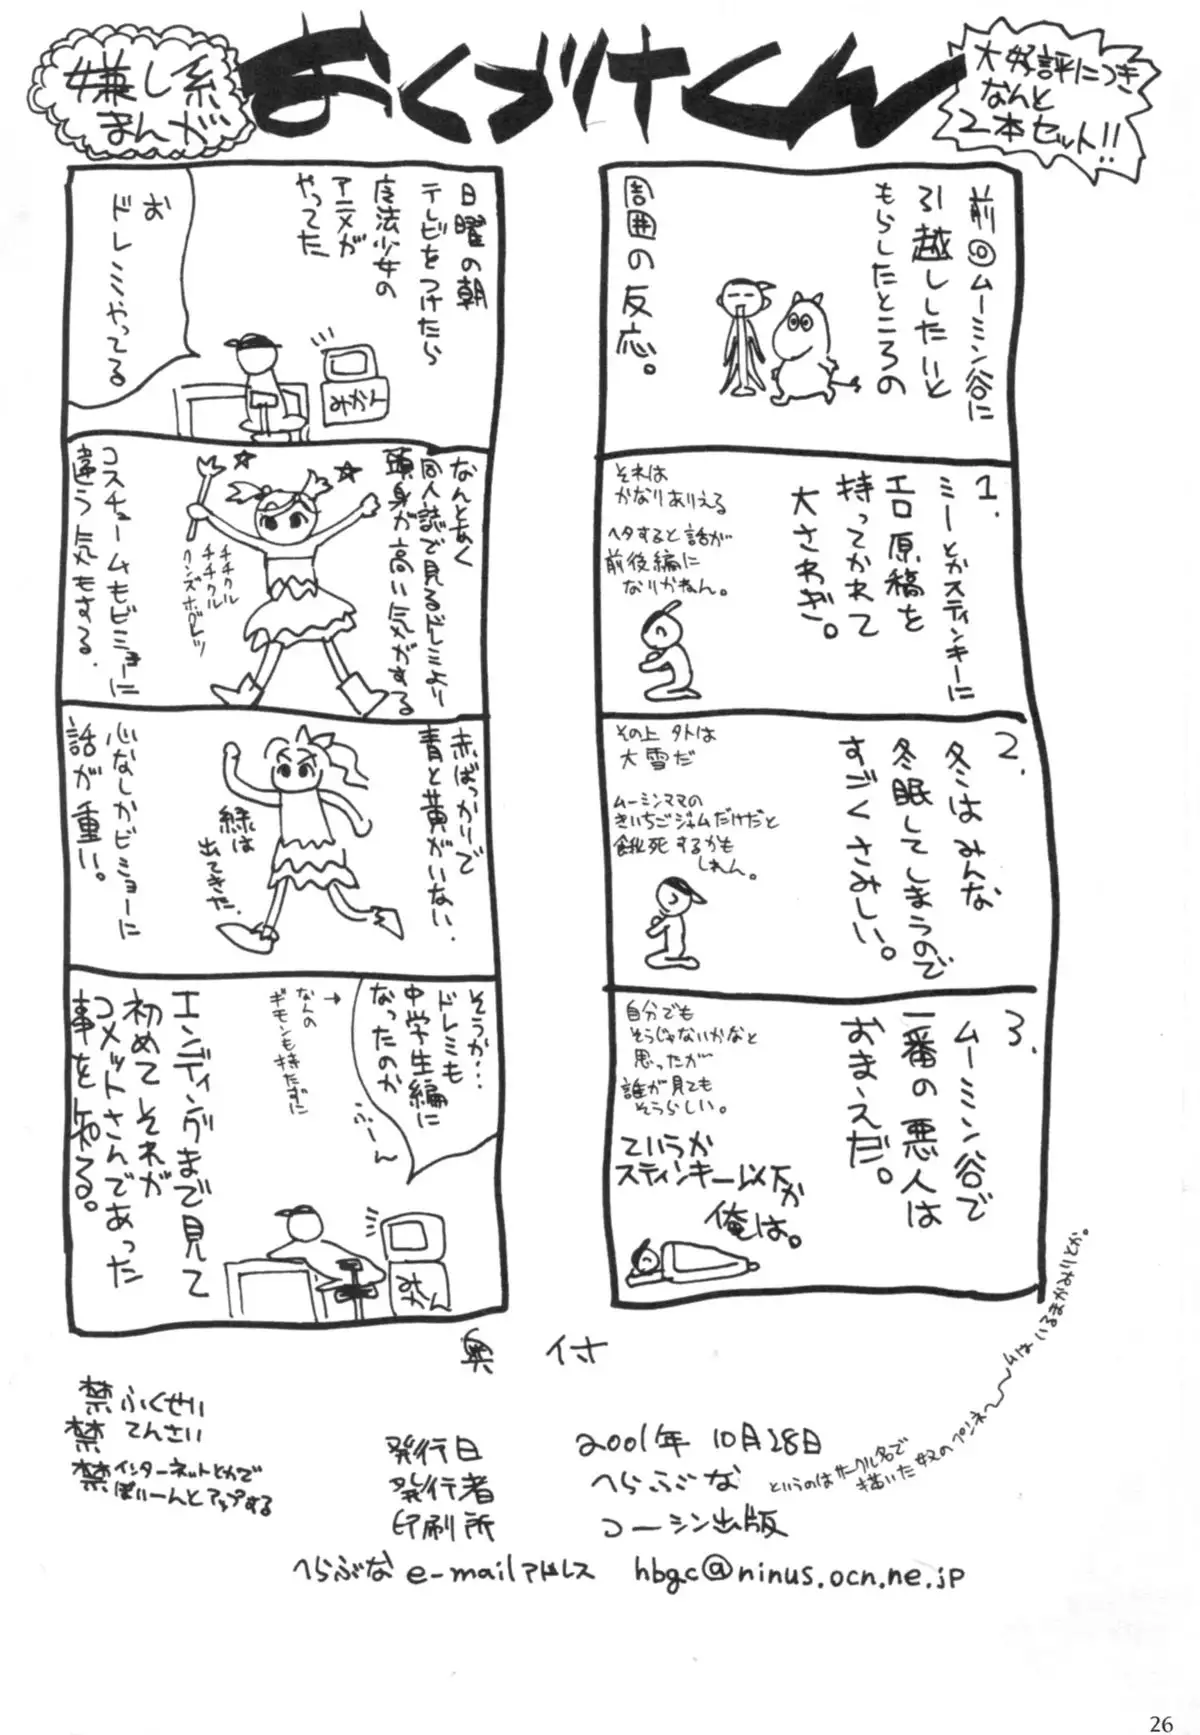 嫌し系
まんが
おくづけくん
大好評につき
なんと
2本セット!!
前回ムーミン谷に
引越ししたいと
もらしたところの
周囲の反応。
1.
ミーとかスティンキーに
エロ原稿を
持ってかれて
大さわぎ。
それは
かなりありえる
ヘタすると話が
前後編に
なりかねん。
2.
冬はみんな
冬眠してしまうので
すごくさみしい。
その上外は
大雪だ
ムーミンママの
きいちごジャムだけだと
餓死するかも
しれん。
3.
ムーミン谷で
一番の悪人は
おまえだ。
自分でも
そうじゃないかなと
思ったが
誰が見ても
そうらしい。
ていうか
スティンキー以下か
俺は。
日曜の朝
テレビをつけたら
魔法少女の
アニメが
やってた
お
ドレミやってる
みかん
なんとなく
同人誌で見るドレミより
頭身が高い気がする
チチクル
チチクル
クンズホグレツ
コスチュームもビミョーに
違う気もする.
赤ばっかりで
青と黄がいない.
緑は
出てきた.
心なしかビミョーに
話が重い。
そうか…
ドレミも
中学生編に
なったのか
ふーん
なんの
ギモンも持たずに
エンディングまで見て
初めてそれが
コメットさんであった
事を知る。
みかん
奥付
禁ふくせい
禁てんさい
禁インターネットとかで
ぼいーんとアップする
発行日 2001年10月28日
発行者 へらぶな
というのはサークル名で
描いた奴のペンネームはいるまかみりとか。
印刷所 コーシン出版
へらぶな e-mailアドレス hbgc@ninus.ocn.ne.jp
26